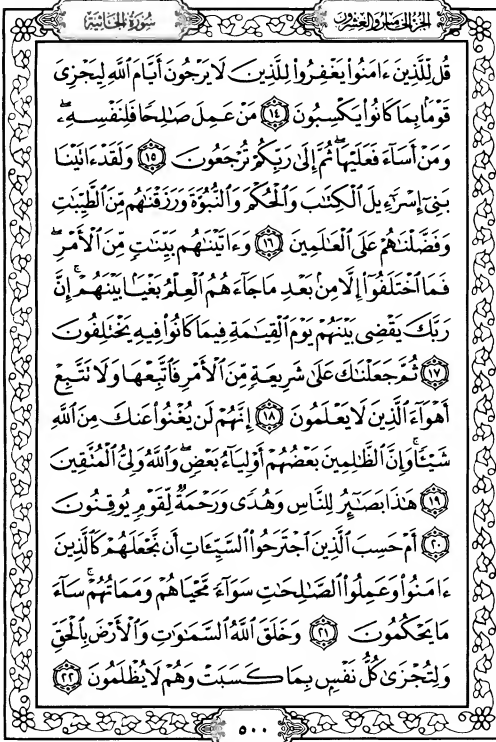 سُورَةُ الجَاثِيَةِ الجُزءُ الخَامِسُ وَالعِشْرُونَ
قُل لِّلَّذِينَ ءَامَنُوا۟ يَغْفِرُوا۟ لِلَّذِينَ لَا يَرْجُونَ أَيَّامَ ٱللَّهِ لِيَجْزِىَ
قَوْمًۢا بِمَا كَانُوا۟ يَكْسِبُونَ ١٤ مَنْ عَمِلَ صَـٰلِحًا فَلِنَفْسِهِۦ
وَمَنْ أَسَآءَ فَعَلَيْهَا ثُمَّ إِلَىٰ رَبِّكُمْ تُرْجَعُونَ ١٥ وَلَقَدْ ءَاتَيْنَا
بَنِىٓ إِسْرَٰٓءِيلَ ٱلْكِتَـٰبَ وَٱلْحُكْمَ وَٱلنُّبُوَّةَ وَرَزَقْنَـٰهُم مِّنَ ٱلطَّيِّبَـٰتِ
وَفَضَّلْنَـٰهُمْ عَلَى ٱلْعَـٰلَمِينَ ١٦ وَءَاتَيْنَـٰهُم بَيِّنَـٰتٍ مِّنَ ٱلْأَمْرِ ۖ
فَمَا ٱخْتَلَفُوٓا۟ إِلَّا مِنۢ بَعْدِ مَا جَآءَهُمُ ٱلْعِلْمُ بَغْيًۢا بَيْنَهُمْ ۚ إِنَّ
رَبَّكَ يَقْضِى بَيْنَهُمْ يَوْمَ ٱلْقِيَـٰمَةِ فِيمَا كَانُوا۟ فِيهِ يَخْتَلِفُونَ
١٧ ثُمَّ جَعَلْنَـٰكَ عَلَىٰ شَرِيعَةٍ مِّنَ ٱلْأَمْرِ فَٱتَّبِعْهَا وَلَا تَتَّبِعْ
أَهْوَآءَ ٱلَّذِينَ لَا يَعْلَمُونَ ١٨ إِنَّهُمْ لَن يُغْنُوا۟ عَنكَ مِنَ ٱللَّهِ
شَيْـًٔا ۚ وَإِنَّ ٱلظَّـٰلِمِينَ بَعْضُهُمْ أَوْلِيَآءُ بَعْضٍ ۖ وَٱللَّهُ وَلِىُّ ٱلْمُتَّقِينَ
١٩ هَـٰذَا بَصَـٰٓئِرُ لِلنَّاسِ وَهُدًى وَرَحْمَةٌ لِّقَوْمٍ يُوقِنُونَ
٢٠ أَمْ حَسِبَ ٱلَّذِينَ ٱجْتَرَحُوا۟ ٱلسَّيِّـَٔاتِ أَن نَّجْعَلَهُمْ كَٱلَّذِينَ
ءَامَنُوا۟ وَعَمِلُوا۟ ٱلصَّـٰلِحَـٰتِ سَوَآءً مَّحْيَاهُمْ وَمَمَاتُهُمْ ۚ سَآءَ
مَا يَحْكُمُونَ ٢١ وَخَلَقَ ٱللَّهُ ٱلسَّمَـٰوَٰتِ وَٱلْأَرْضَ بِٱلْحَقِّ
وَلِتُجْزَىٰ كُلُّ نَفْسٍۭ بِمَا كَسَبَتْ وَهُمْ لَا يُظْلَمُونَ ٢٢
٥٠٠